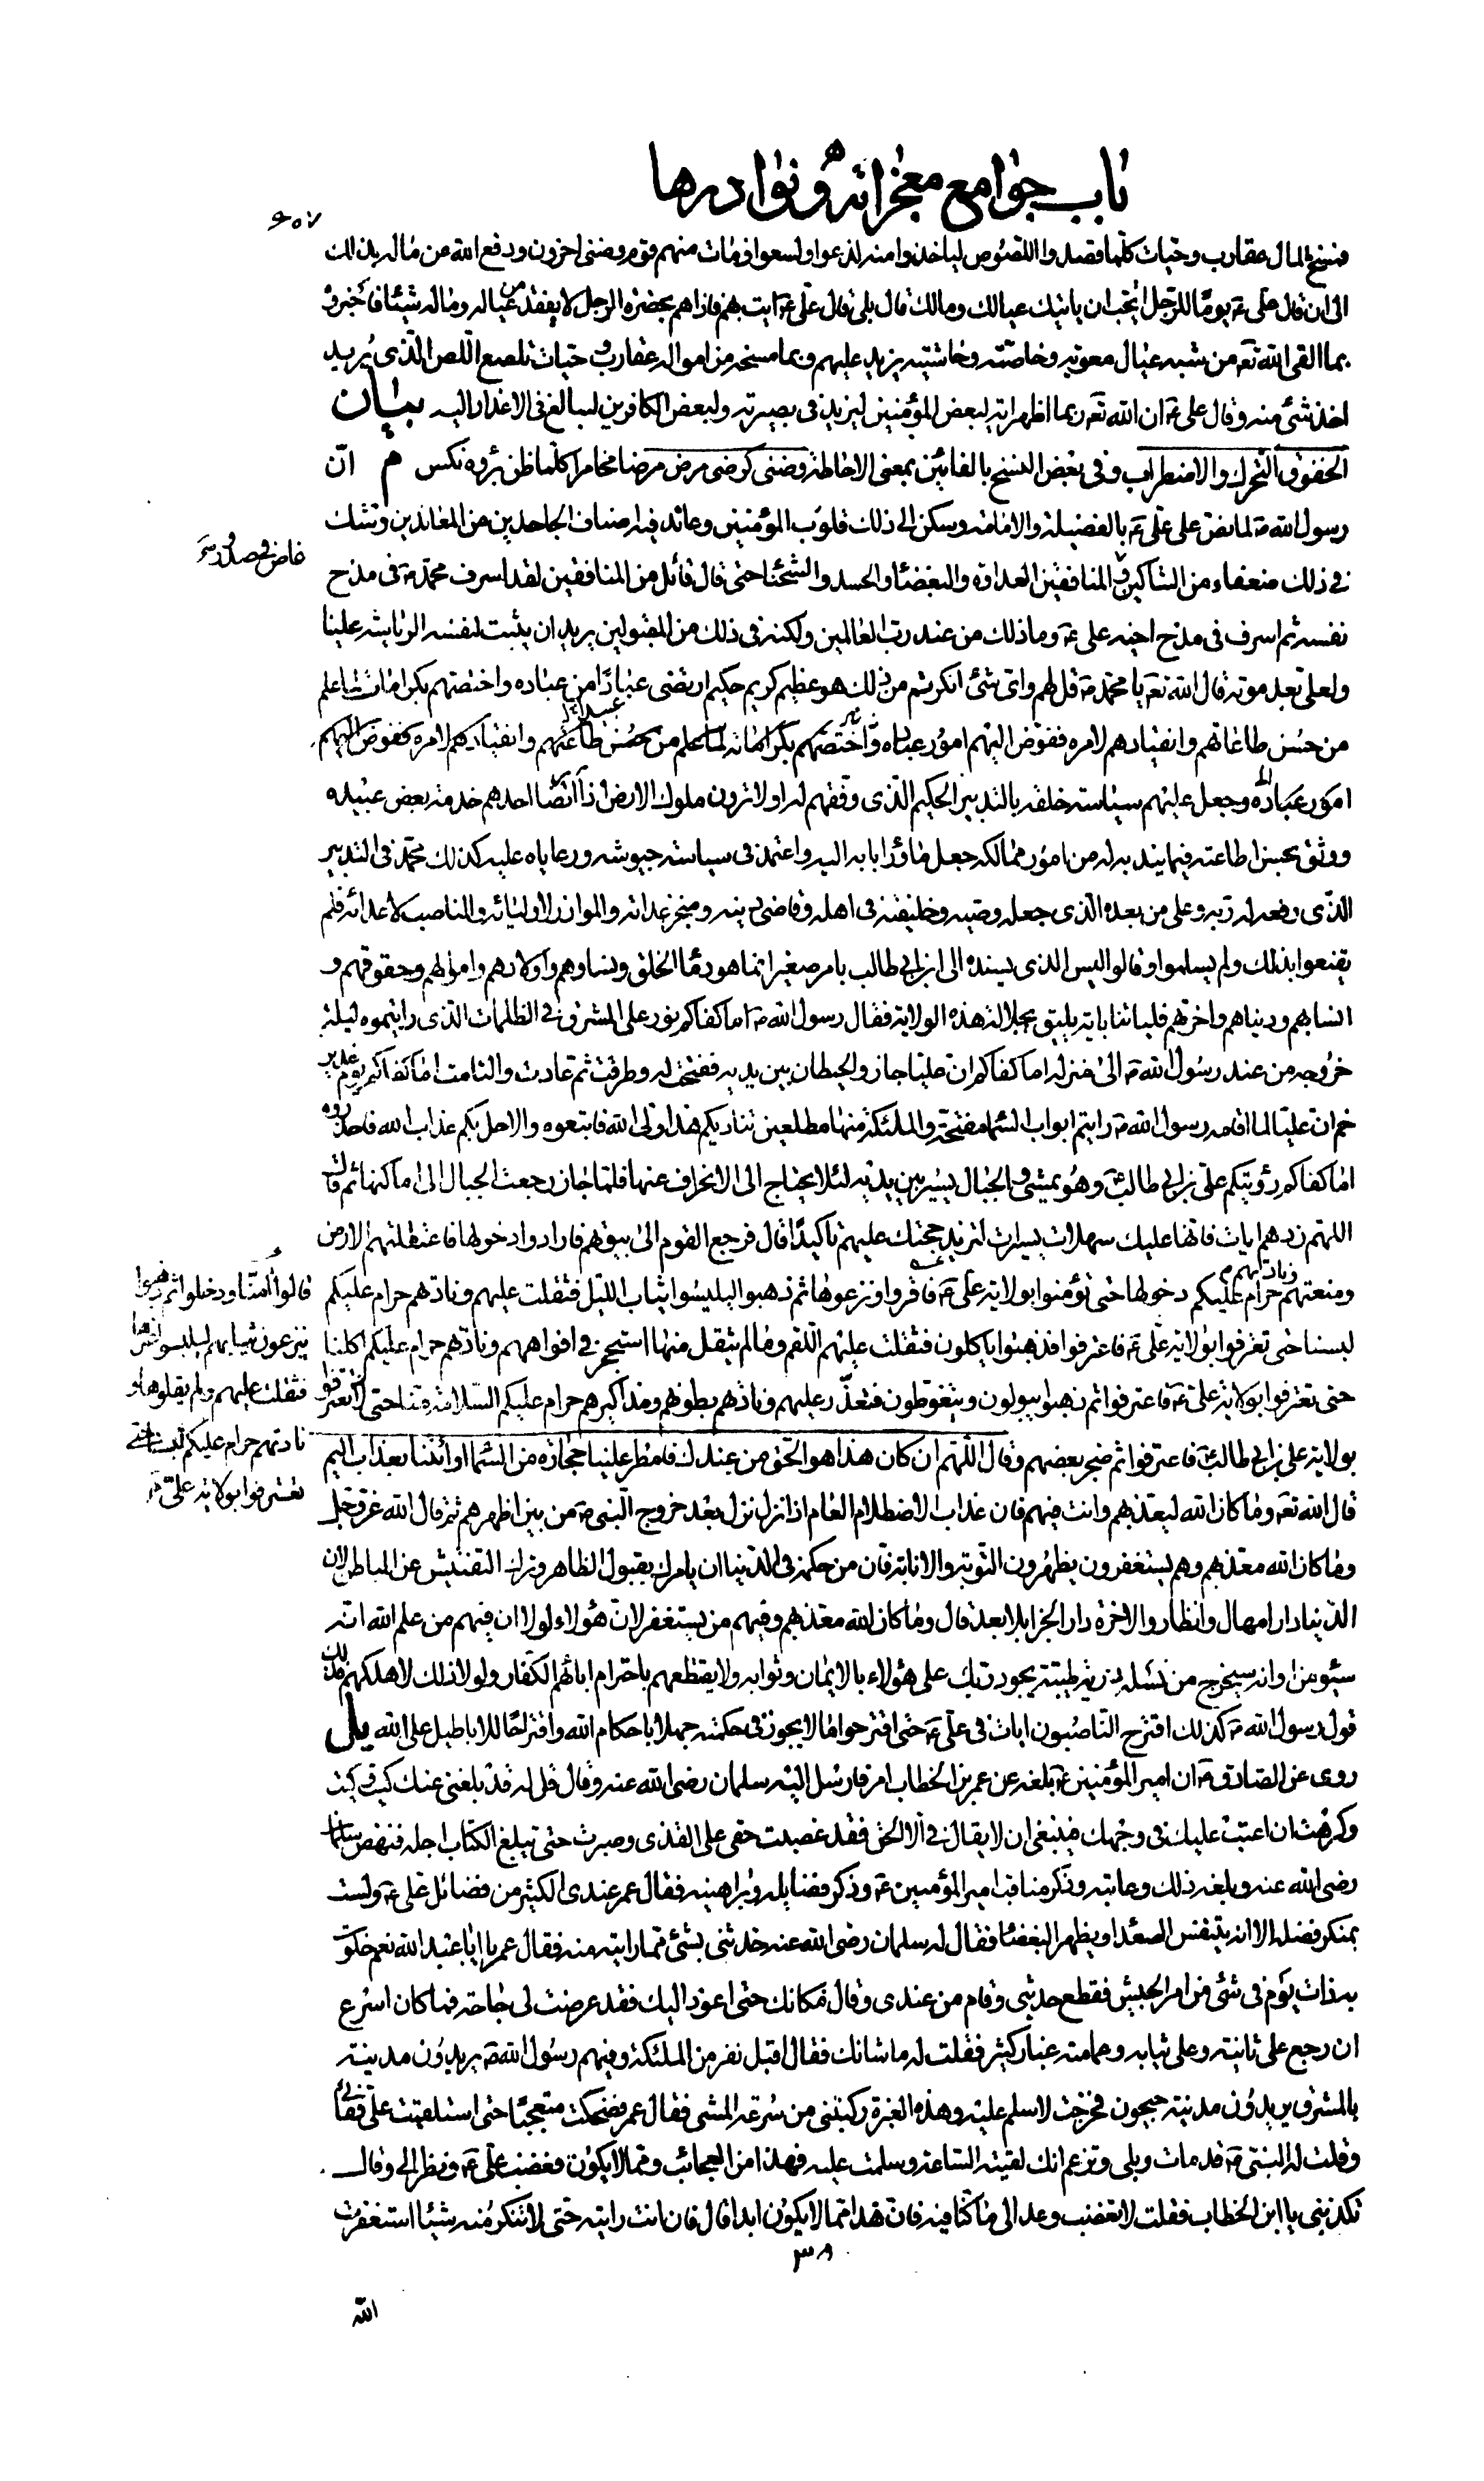 باب جوامع معجزاته ونوادرها
٦٥٧
فنسخ المال عقارب وحيات كلما قصد واللصوص لياخذوا منه لدغوا ولسعوا فمات منهم قوم وضنى اخرون ودفع الله عن ماله بذلك
الى ان قال على ع يوما للرجل اتحب ان ياتيك عيالك ومالك قال بلى قال على ع ايت بهم فاذا هم بحضرة الرجل لا يفقد من عياله وماله شيئا فاخبروه
بما القى الله تعه من شبه عيال معوية وخاصته وحاشيته يزيد عليهم وبما مسخه من امواله عقارب وحيات تلسع اللص الذى يريد
اخذ شئ منه وقال على ع ان الله تعه ربما اظهر اية لبعض المؤمنين ليزيد فى بصيرته ولبعض الكافرين ليبالغ فى الاعذار اليه بيان
الخفوق التحرك والاضطراب وفى بعض النسخ بالفائين بمعنى الاحاطة وضنى كرضى مرض مرضا مخامرا كلما ظن برؤه نكس م ان
رسول الله ص لما نص على على ع بالفضيلة والامامة وسكن الى ذلك قلوب المؤمنين وعاند فيه اصناف الجاحدين من المعاندين وشك
فى ذلك ضعفاء من الشاكين و المنافقين العداوة والبغضاء والحسد والشحناء حتى قال قائل من المنافقين لقد اسرف محمد ص فى مدح
غاض فى صدور
نفسه ثم اسرف فى مدح اخيه على ع وما ذلك من عند رب العالمين ولكنه فى ذلك من المتقولين يريد ان يثبت لنفسه الرياسة علينا
ولعلى بعد موته قال الله تعه يا محمد ص قل لهم واى شئ انكرتم من ذلك هو عظيم كريم حكيم ارتضى عبادا من عباده واختصهم بكرامات لما علم
من حسن طاعاتهم وانقيادهم لامره ففوض اليهم امور عباده واختصهم بكراماته لما علم من حسن طاعتهم وانقيادهم لامره ففوض اليهم
امور عباده وجعل عليهم سياسة خلقه بالتدبير الحكيم الذى وفقهم له اولا ترون ملوك الارض اذا ارتضا احدهم خدمة بعض عبيده
ووثق بحسن اطاعته فيما يندبه له من امور ممالكه جعل ما وراء بابه اليه واعتمد فى سياسة جيوشه ورعاياه عليه كذلك محمد فى التدبير
الذى رفعه له ربه وعلى من بعده الذى جعله وصيه وخليفته فى اهله وقاضى دينه ومنجز عداته والموازر لاوليائه والمناصب لاعدائه فلم
يقنعوا بذلك ولم يسلموا وقالوا ليس الذى يسنده الى ابن ابى طالب بامر صغير انما هو دماء الخلق ونساؤهم واولادهم واموالهم وحقوقهم و
انسابهم ودنياهم واخرتهم فلياتنا باية يليق بجلالة هذه الولاية فقال رسول الله ص اما كفاكم نور على المشرق فى الظلمات الذى رايتموه ليلة
خروجه من عند رسول الله ص الى منزله اما كفاكم ان عليا جاز والحيطان بين يديه ففتحت له وطرقت ثم عادت والتامت اما كفاكم يوم غدير
خم ان عليا لما اقامه رسول الله ص رايتم ابواب السماء مفتحة والملئكة منها مطلعين تناديكم هذا ولى الله فاتبعوه والا حل بكم عذاب الله فاحذروه
اما كفاكم رؤيتكم على بن ابى طالب ع وهو يمشى والجبال يسير بين يديه لئلا يحتاج الى الانحراف عنها فلما جاز رجعت الجبال الى اماكنها ثم قال
اللهم زدهم ايات فانها عليك سهلات يسيرات لتزيد حجتك عليهم تاكيدا قال فرجع القوم الى بيوتهم فارادوا دخولها فاعتقلتهم الارض
ومنعتهم ونادتهم حرام عليكم دخولها حتى تؤمنوا بولاية على ع فاقروا ونزعوها ثم ذهبوا ليلبسوا ثياب الليل فثقلت عليهم ونادتهم حرام عليكم
قالوا امنا ودخلوا ثم ذهبوا
ينزعون ثيابهم ليلبسوا غيرها
فثقلت عليهم ولم يقلوها و
نادتهم حرام عليكم لبسنا حتى
تعترفوا بولاية على ع
لبسنا حتى تعترفوا بولاية على ع فاعترفوا فذهبوا ياكلون فثقلت عليهم اللقم وما لم يثقل منها استحجر فى افواههم ونادتهم حرام عليكم اكلنا
حتى تعترفوا بولاية على ع فاعترفوا ثم ذهبوا يبولون ويتغوطون فتعذر عليهم ونادتهم بطونهم ومذاكيرهم حرام عليكم السلامة منا حتى تعترفوا
بولاية على بن ابى طالب ع فاعترفوا ثم ضجر بعضهم وقال اللهم ان كان هذا هو الحق من عندك فامطر علينا حجارة من السماء او ائتنا بعذاب اليم
قال الله تعه وما كان الله ليعذبهم وانت فيهم فان عذاب الاصطلام العام اذا نزل نزل بعد خروج النبى ص من بين اظهرهم ثم قال الله عز وجل
وما كان الله معذبهم وهم يستغفرون يظهرون التوبة والانابة فان من حكمه فى الدنيا ان يامرك بقبول الظاهر وترك التفتيش عن الباطن لان
الدنيا دار امهال وانظار والاخرة دار الجزاء بلا بعد قال وما كان الله معذبهم وفيهم من يستغفر لان هؤلاء لولا ان فيهم من علم الله انه
سيؤمن او انه سيخرج من نسله ذرية طيبة يجود ربك على هؤلاء بالايمان وثوابه ولا يقتطعهم باخترام ابائهم الكفار ولولا ذلك لاهلكهم فذلك
قول رسول الله ص كذلك اقترح الناصبون ايات فى على ع حتى اقترحوا ما لا يجوز فى حكمته جهلا باحكام الله واقتراحا للاباطيل على الله يل
روى عن الصادق ع ان امير المؤمنين ع بلغه عن عمر بن الخطاب امر فارسل اليه سلمان رضى الله عنه وقال قل له قد بلغنى عنك كيت وكيت
وكرهت ان اعتب عليك فى وجهك فينبغى ان لا يقال فى الا الحق فقد غصبت حقى على القذى وصبرت حتى تبلغ الكتاب اجله فنهض سلمان
رضى الله عنه وبلغه ذلك وعاتبه وذكر مناقب امير المؤمنين ع وذكر فضايله وبراهينه فقال عمر عندى الكثير من فضائل على ع ولست
بمنكر فضله الا انه يتنفس الصعداء ويظهر البغضاء فقال له سلمان رضى الله عنه حدثنى بشئ مما رايته منه فقال عمر يا ابا عبد الله نعم خلوت
به ذات يوم فى شئ من امر الجيش فقطع حديثى وقام من عندى وقال مكانك حتى اعود اليك فقد عرضت لى حاجة فما كان اسرع
ان رجع على ثانية وعلى ثيابه وعمامته غبار كثير فقلت له ما شانك فقال اقبل نفر من الملئكة وفيهم رسول الله ص يريدون مدينة
بالمشرق يريدون مدينة جيحون فخرجت لاسلم عليه وهذه الغبرة ركبتنى من سرعة المشى فقال عمر فضحكت متعجبا حتى استلقيت على قفائى
وقلت له النبى ص قد مات وبلى وتزعم انك لقيته الساعة وسلمت عليه فهذا من العجائب ومما لا يكون فغضب على ع ونظر الى وقال
تكذبنى يا ابن الخطاب فقلت لا تغضب وعد الى ما كنا فيه فان هذا مما لا يكون ابدا قال فان انت رايته حتى لا تنكر منه شيئا استغفرت
٣٨
الله